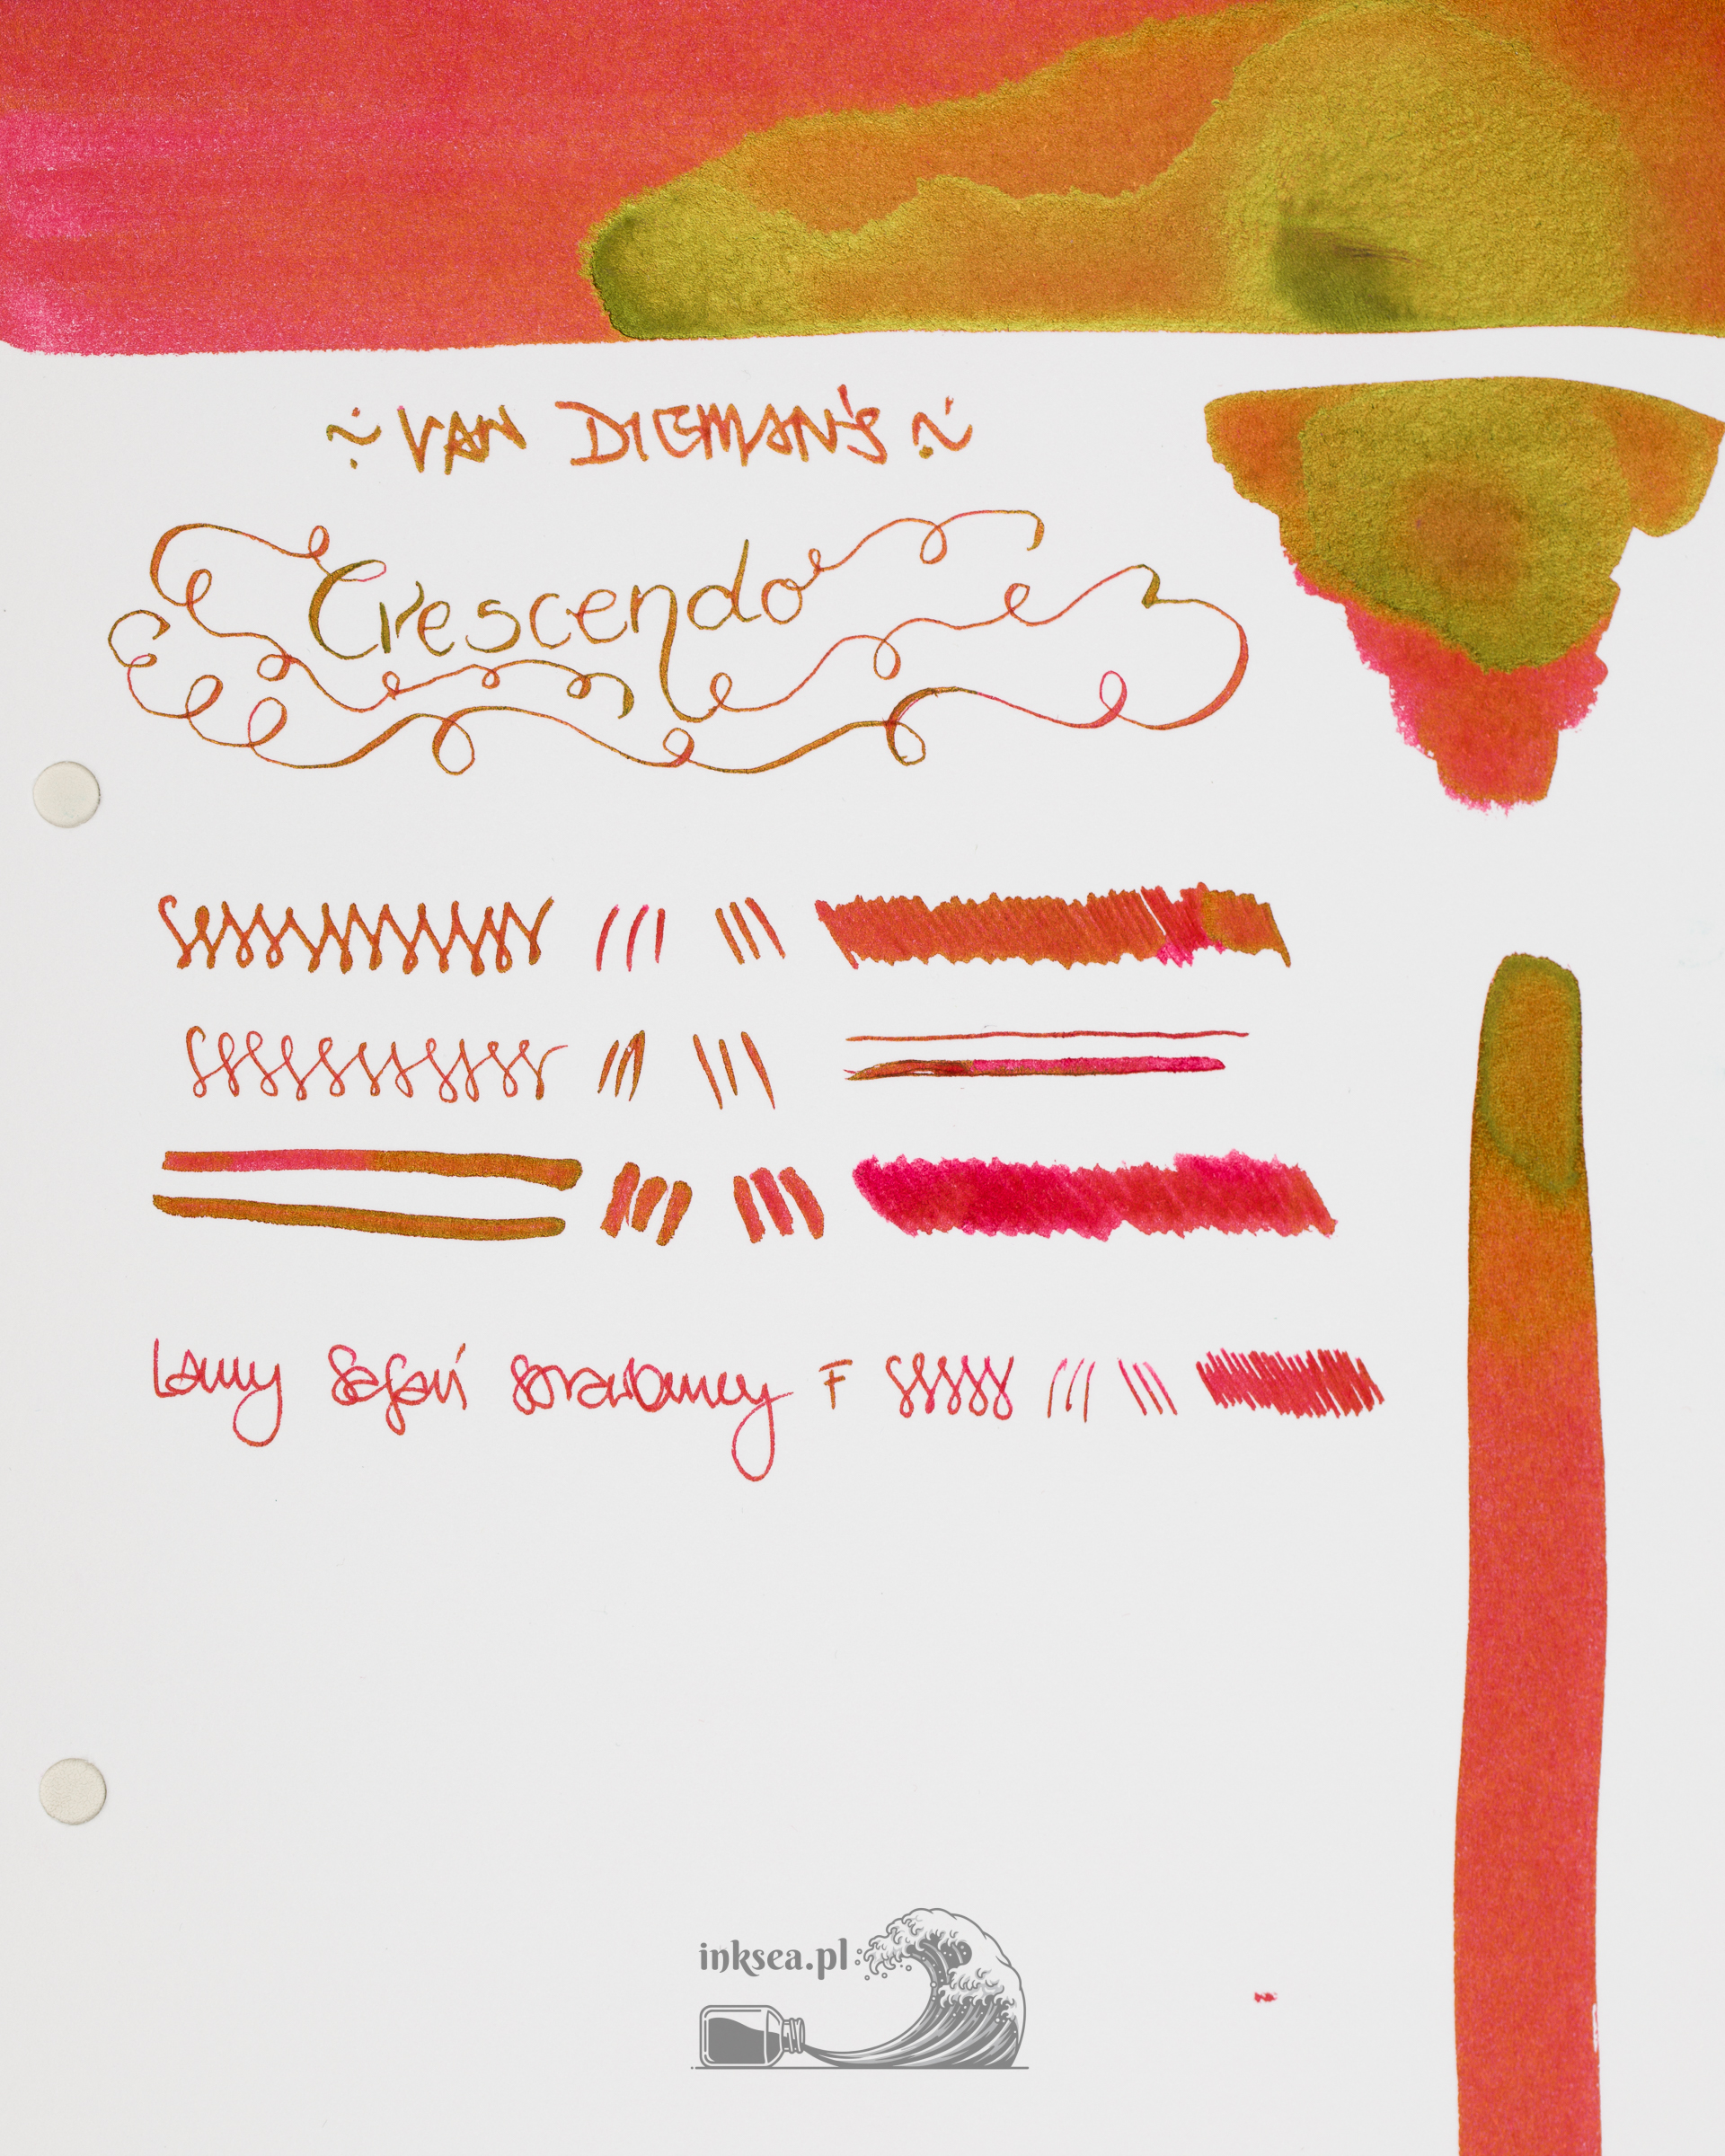 ~ VAN DIEMAN'S ~
Crescendo
Lamy Safari Strawberry F
inksea.pl